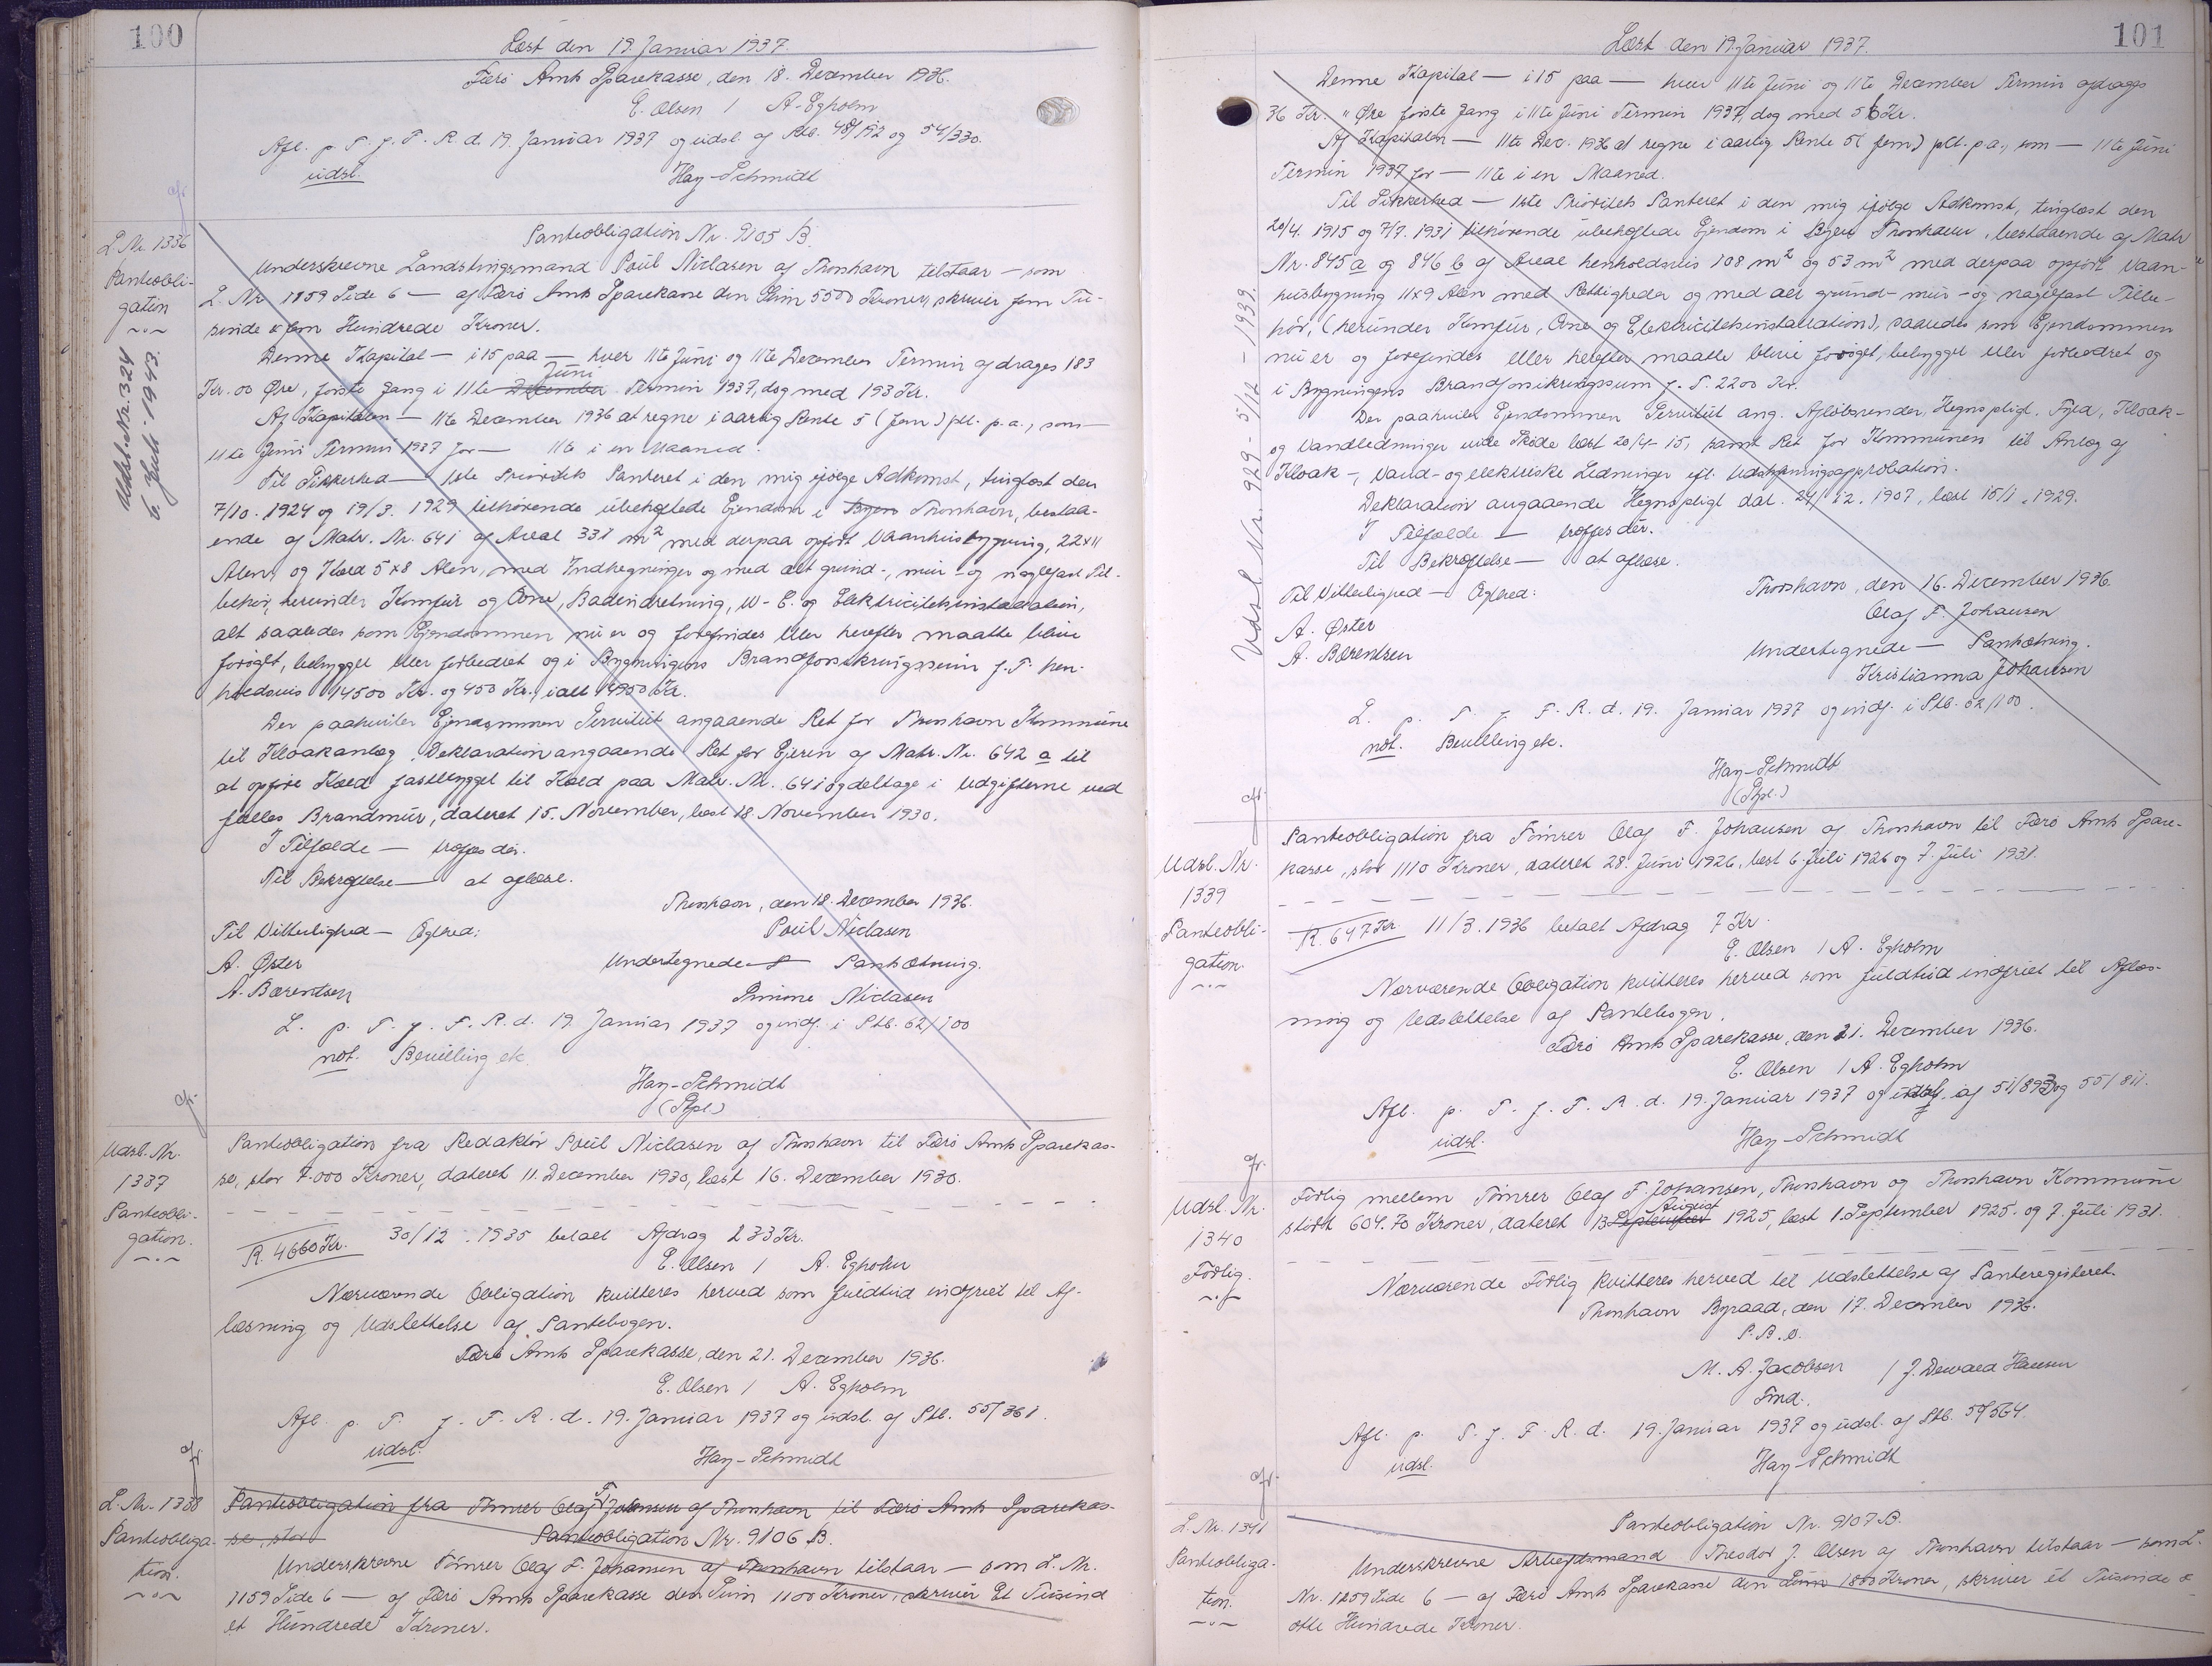 100
Læst den 19. Januar 1937.
Færø Amts Sparekasse, den 18. December 1936.
E. Olsen / A. Egholm
Afl. p. T. f. F. R. d. 19. Januar 1937 og udsl. af Ptb. 48/192 og 54/330.
udsl. Hay-Schmidt
L. Nr. 1336
Panteobli-
gation
Udsl. Nr. 324
6. Juli 1943.
Panteobligation Nr. 9105 B.
Underskrevne Landstingsmand Poul Niclasen af Thorshavn tilstaar — som
L. Nr. 1159 Side 6 — af Færø Amts Sparekasse den Sum 5500 Kroner, skriver fem Tu-
sinde & fem Hundrede Kroner.
Denne Kapital — i 15 paa — hver 11te Juni og 11te December Termin afdrages 183
Juni
Kr. 00 Øre, første Gang i 11te December Termin 1937, dog med 193 Kr.
Af Kapitalen — 11te December 1936 at regne i aarlig Rente 5 (fem) pCt. p.a., som —
11te Juni Termin 1937 for — 11te i en Maaned.
Til Sikkerhed — 1ste Prioritets Panteret i den mig ifølge Adkomst, tinglæst den
7/10. 1924 og 19/3. 1929 tilhørende ubehæftede Ejendom i Byen Thorshavn, bestaa-
ende af Matr. Nr. 641 af Areal 331 m² med derpaa opført Vaanhusbygning, 22x11
Alen, og Kæld 5x8 Alen, med Indhegninger og med alt grund-, mur- og naglefast Til-
behør, herunder Komfur og Ovne, Badeindretning, W-C. og Elektricitetsinstallation,
alt saaledes som Ejendommen nu er og forefindes eller herefter maatte blive
forøget, bebygget eller forbedret og i Bygningens Brandforsikringssum f. T. hen-
holdsvis 14500 Kr. og 450 Kr., ialt 14950 Kr.
Der paahviler Ejendommen Servitut angaaende Ret for Thorshavn Kommune
til Kloakanlæg. Deklaration angaaende Ret for Ejeren af Matr. Nr. 642 a til
at opføre Kæld fastbygget til Kæld paa Matr. Nr. 641 og deltage i Udgifterne ved
fælles Brandmur, dateret 15. November, læst 18. November 1930.
I Tilfælde — træffes dér.
Til Bekræftelse — at aflæse.
Thorshavn, den 18. December 1936.
Til Vitterlighed — Egthed: Poul Niclasen
A. Øster Undertegnede — Pantsætning.
A. Bærentsen Simine Niclasen
L. p. T. f. F. R. d. 19. Januar 1937 og indf. i Ptb. 62/100
not. Bevilling etc.
Hay-Schmidt
(Stpl.)
Udsl. Nr.
1337
Panteobli-
gation.
Panteobligation fra Redaktør Poul Niclasen af Thorshavn til Færø Amts Sparekas-
se, stor 7.000 Kroner, dateret 11. December 1930, læst 16. December 1930.
R. 4660 Kr. 30/12. 1935 betalt Afdrag 233 Kr.
E. Olsen / A. Egholm
Nærværende Obligation kvitteres herved som fuldtud indfriet til Af-
læsning og Udslettelse af Pantebogen.
Færø Amts Sparekasse, den 21. December 1936.
E. Olsen / A. Egholm
Afl. p. T. f. F. R. d. 19. Januar 1937 og udsl. af Ptb. 55/361.
udsl. Hay-Schmidt
L. Nr. 1338
Panteobliga-
tion.
Panteobligation fra Tømrer Olaf F. Johansen af Thorshavn til Færø Amts Sparekas-
se, stor
Panteobligation Nr. 9106 B.
Underskrevne Tømrer Olaf F. Johansen af Thorshavn tilstaar — som L. Nr.
1159 Side 6 — af Færø Amts Sparekasse den Sum 1100 Kroner, skriver Et Tusind
et Hundrede Kroner.
101
Læst den 19. Januar 1937.
Denne Kapital — i 15 paa — hver 11te Juni og 11te December Termin afdrages
36 Kr. " Øre første Gang i 11te Juni Termin 1937, dog med 56 Kr.
Af Kapitalen — 11te Dec. 1936 at regne i aarlig Rente 5 (fem) pCt. p.a., som — 11te Juni
Termin 1937 for — 11te i en Maaned.
Til Sikkerhed — 1ste Prioritets Panteret i den mig ifølge Adkomst, tinglæst den
20/4. 1915 og 7/7. 1931 tilhørende ubehæftede Ejendom i Byen Thorshavn, bestaaende af Matr.
Nr. 845 a og 846 b af Areal henholdsvis 108 m² og 53 m² med derpaa opført Vaan-
husbygning 11x9 Alen med Rettigheder og med alt grund- mur- og naglefast Tilbe-
hør, (herunder Komfur, Ovne og Elektricitetsinstallation), saaledes som Ejendommen
nu er og forefindes eller herefter maatte blive forøget, bebygget eller forbedret og
i Bygningens Brandforsikringssum f. T. 2200 Kr.
Der paahviler Ejendommen Servitut ang. Afløbsrender, Hegnspligt, Fyld, Kloak-
og Vandledninger vide Skøde læst 20/4-15, samt Ret for Kommunen til Anlæg af
Kloak-, Vand- og elektriske Ledninger efl. Udstykningsapprobation.
Deklaration angaaende Hegnspligt dat. 24/12. 1907, læst 15/1. 1929.
I Tilfælde — træffes dér.
Til Bekræftelse — at aflæse.
Thorshavn, den 16. December 1936.
Til Vitterlighed — Egthed: Olaf F. Johansen
A. Øster Undertegnede — Pantsætning.
A. Bærentsen Kristianna Johansen
L. p. T. f. F. R. d. 19. Januar 1937 og indf. i Ptb. 62/100.
not. Bevilling etc.
Hay-Schmidt
(Stpl.)
Udsl. Nr. 929 - 5/12 - 1939.
Udsl. Nr.
1339
Panteobli-
gation.
Panteobligation fra Tømrer Olaf F. Johansen af Thorshavn til Færø Amts Spare-
kasse, stor 1110 Kroner, dateret 28. Juni 1926, læst 6. Juli 1926 og 7. Juli 1931.
R. 647 Kr. 11/3. 1936 betalt Afdrag 7 Kr.
E. Olsen / A. Egholm
Nærværende Obligation kvitteres herved som fuldtud indfriet til Aflæs-
ning og Udslettelse af Pantebogen.
Færø Amts Sparekasse, den 21. December 1936.
E. Olsen / A. Egholm
Afl. p. T. f. F. R. d. 19. Januar 1937 og udsl. af 51/893 og 55/811.
udsl. Hay-Schmidt
Udsl. Nr.
1340
Forlig.
Forlig mellem Tømrer Olaf F. Johansen, Thorshavn og Thorshavn Kommune
August
stort 604.70 Kroner, dateret 13 September 1925, læst 1. September 1925 og 7. Juli 1931.
Nærværende Forlig kvitteres herved til Udslettelse af Panteregisteret.
Thorshavn Byraad, den 17. December 1936.
P. B. V.
M. A. Jacobsen / J. Dewald Hansen
Fmd.
Afl. p. T. f. F. R. d. 19. Januar 1937 og udsl. af Ptb.
udsl. Hay-Schmidt
L. Nr. 1341
Panteobliga-
tion.
Panteobligation Nr. 9107 B.
Underskrevne Arbejdsmand Theodor J. Olsen af Thorshavn tilstaar — som L.
Nr. 1259 Side 6 — af Færø Amts Sparekasse den Sum 1800 Kroner, skriver et Tusinde &
otte Hundrede Kroner.